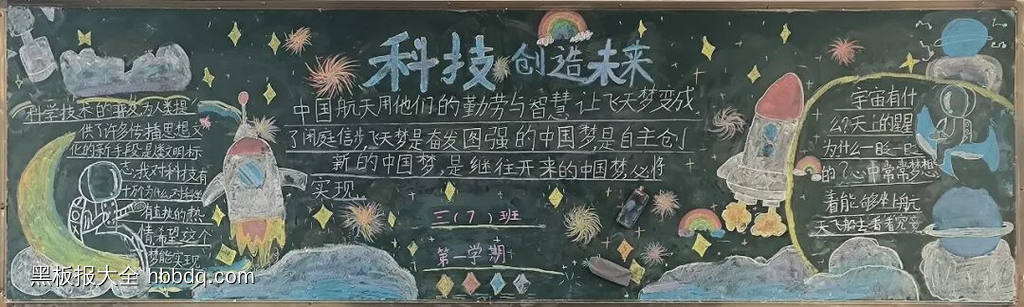 科技创造未来
科学技术的普及为人类提
供了许多传播思想文
化的新手段是文明标
志,我对科技有
十万个为什么对科学
有直执的热
情希望这个
梦能实现
中国航天用他们的勤劳与智慧让飞天梦变成
了闲庭信步,飞天梦是奋发图强的中国梦,是自主创
新的中国梦,是继往开来的中国梦,必将
实现
三(7)班
第一学期
宇宙有什
么?天上的星星
为什么一眨一眨
的?心中常常梦想
着能够坐上航
天飞船去看看究竟
黑板报大全 hbbdq.com